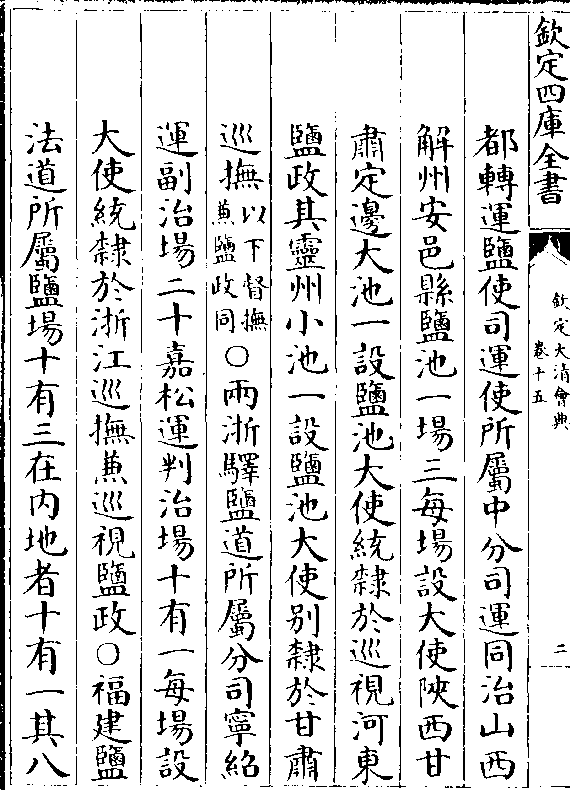 欽定四庫全書
欽定大清會典
卷十五
二
都轉運鹽使司運使所屬中分司運同治山西
解州安邑縣鹽池一場三每場設大使陝西甘
肅定邊大池一設鹽池大使統隸於巡視河東
鹽政其靈州小池一設鹽池大使别隸於甘肅
巡撫以下督撫兼鹽政同○兩浙驛鹽道所屬分司寧紹
運副治場二十嘉松運判治場十有一每場設
大使統隸於浙江巡撫兼巡視鹽政○福建鹽
法道所屬鹽場十有三在内地者十有一其八